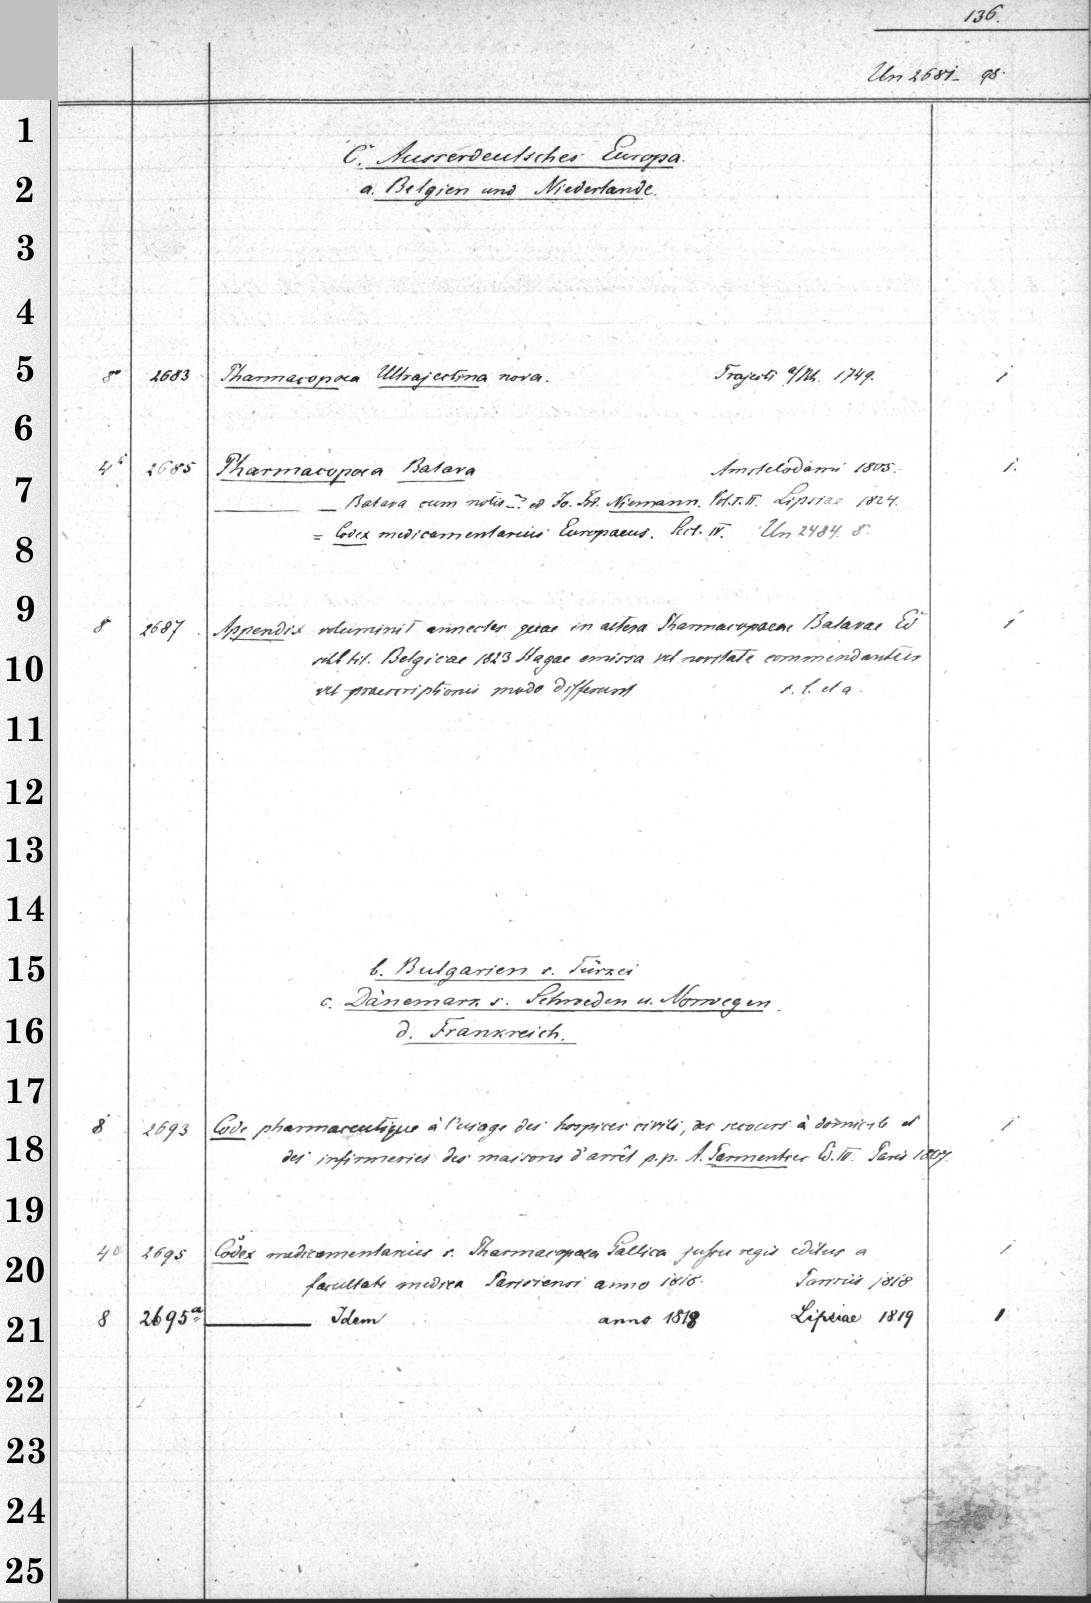 136.
Un 2681- 98.
1
C. Ausserdeutsches Europa.
2
a. Belgien und Niederlande.
3
4
5
8° 2683 Pharmacopoea Ultrajectina nova. Trajecti a/Rh. 1749. 1
6
4° 2685 Pharmacopoea Batava Amstelodami 1805. 1.
7
— Batava cum notis ed Jo. Frd. Niemann. Vol. I. II. Lipsiae 1824.
8
= Codex medicamentarius Europaeus. Sect. IV. Un 2484. 8.
9
8 2687 Appendix voluminis annectes quae in altera Pharmacopoeae Batavae Ed 1
10
tit. Belgicae 1823 Hagae emissa vel novitate commendantur
vel praescriptionis modo differunt s. l. et a.
11
12
13
14
15
b. Bulgarien s. Türkei
c. Dänemark s. Schweden u. Norwegen.
16
d. Frankreich.
17
8 2693 Code pharmaceutique à l'usage des hospices civils, des secours à domicile et 1
18
des infirmeries des maisons d'arrêt p.p. A. Parmentier Ed. III. Paris 1807.
19
4° 2695 Codex medicamentarius s. Pharmacopoea Gallica jussu regis editus a 1
20
facultate medica Parisiensi anno 1818. Parisiis 1818
21
8 2695a Idem anno 1818 Lipsiae 1819 1
22
23
24
25